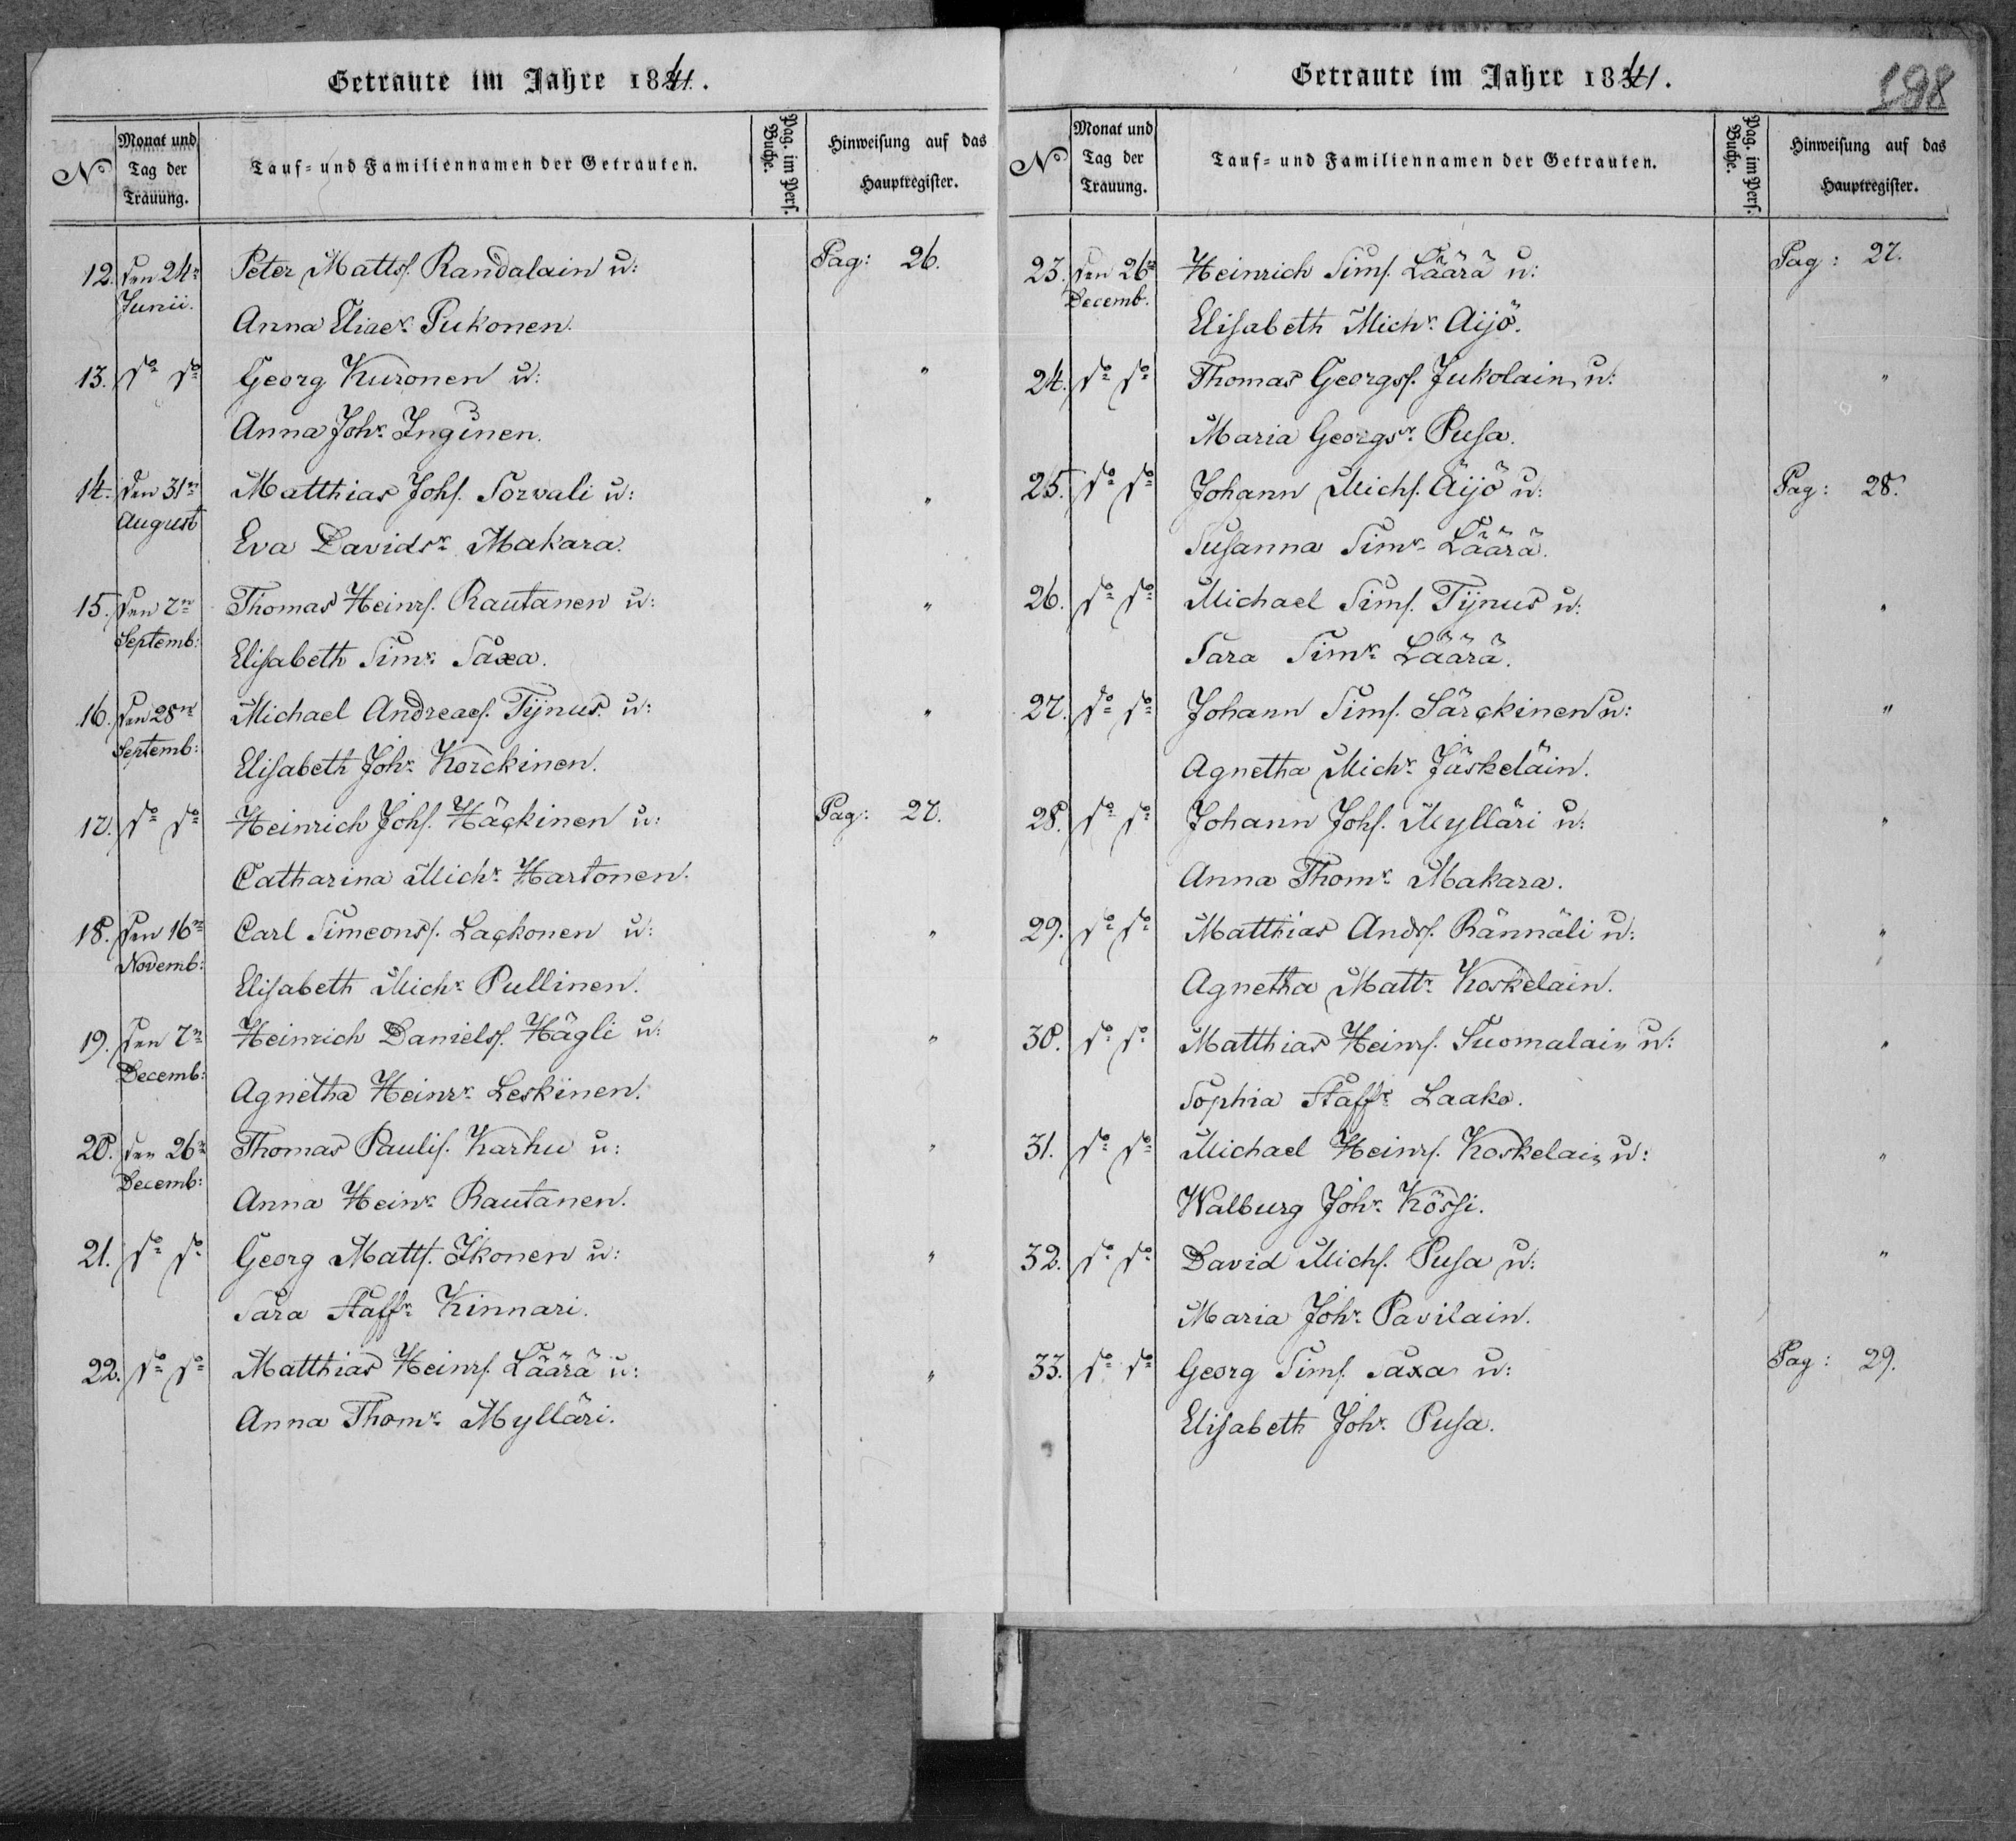 Getraute im Jahre 1841.
No
Monat und Tag der Trauung.
Tauf- und Familiennamen der Getrauten.
Pag. im Pers. Buche.
Hinweisung auf das Hauptregister.
12. den 24n Junii. Peter Mattsf. Randalain u: Pag: 26.
Anna Eliaer Pukonen.
13. do do Georg Kuronen u: "
Anna Johr Inginen.
14. den 31n August Matthias Johs. Sorvali u: "
Eva Davidsr Makara.
15. den 7n Septemb: Thomas Heinrs. Rautanen u: "
Elisabeth Simr Saxa.
16. den 28n Septemb: Michael Andreaes. Tijnus u: "
Elisabeth Johr Korckinen.
17. do do Heinrich Johs. Häckinen u: Pag: 27.
Catharina Michr Hartonen.
18. den 16n Novemb: Carl Simeonss. Lackonen u: "
Elisabeth Michr Pullinen.
19. den 7n Decemb: Heinrich Daniels. Hägli u: "
Agnetha Heinrr Leskinen.
20. den 26n Decemb: Thomas Paulis. Karhu u: "
Anna Heinr Rautanen.
21. do do Georg Matts. Ikonen u: "
Sara Staffr Kinnari.
22. do do Matthias Heinrs. Läärä u: "
Anna Thomr Mylläri.
Getraute im Jahre 1841.
198
No
Monat und Tag der Trauung.
Tauf- und Familiennamen der Getrauten.
Pag. im Pers. Buche.
Hinweisung auf das Hauptregister.
23. den 26n Decemb. Heinrich Sims. Läärä u: Pag: 27.
Elisabeth Michr Äijö.
24. do do Thomas Georgss. Jukolain u: "
Maria Georgsr Pusa.
25. do do Johann Michs. Äijö u: Pag: 28.
Susanna Simr Läärä.
26. do do Michael Sims. Tijnus u: "
Sara Simr Läärä.
27. do do Johann Sims. Särckinen u: "
Agnetha Michr Jäskeläin.
28. do do Johann Johs. Mylläri u: "
Anna Thomr Makara.
29. do do Matthias Ands. Rännäli u: "
Agnetha Mattr Koskelain.
30. do do Matthias Heinrs. Suomalain u: "
Sophia Staffr Laako.
31. do do Michael Heinrs. Koskelain u: "
Walburg Johr Kössi.
32. do do David Michs. Pusa u: "
Maria Johr Pavilain.
33. do do Georg Sims. Saxa u: Pag: 29.
Elisabeth Johr Pusa.